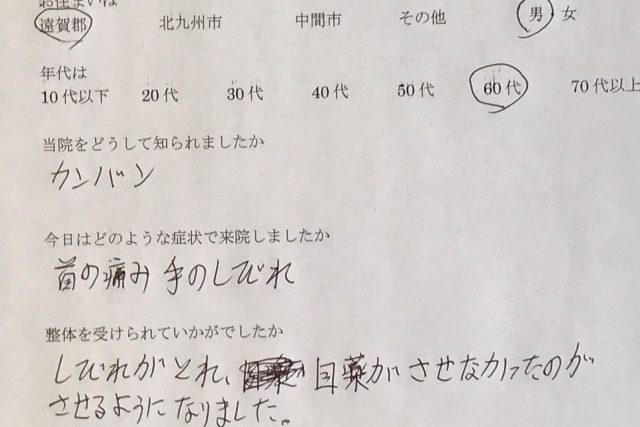 お住まいは
遠賀郡 北九州市 中間市 その他 男・女
年代は
10代以下 20代 30代 40代 50代 60代 70代以上
当院をどうして知られましたか
カンバン
今日はどのような症状で来院しましたか
首の痛み 手のしびれ
整体を受けられていかがでしたか
しびれがとれ、目薬がさせなかったのが
させるようになりました。